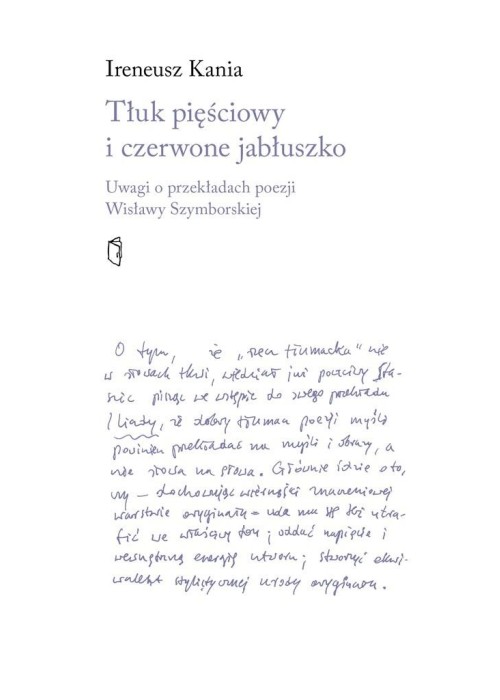 Ireneusz Kania
Tłuk pięściowy
i czerwone jabłuszko
Uwagi o przekładach poezji
Wisławy Szymborskiej
O tym, że „rzecz tłumacka” nie
w słowach tkwi, wiedział już poczciwy Sta-
szic pisząc we wstępie do swego przekładu
Iliady, iż dobry tłumacz poezji myśli
powinien przekładać na myśli i obrazy, a
nie słowa na słowa. Głównie idzie o to,
czy – dochowując wierności znaczeniowej
warstwie oryginału – uda mu się też utra-
fić we właściwy ton; oddać napięcie i
wewnętrzną energię utworu; stworzyć ekwi-
walent stylistycznej urody oryginału.